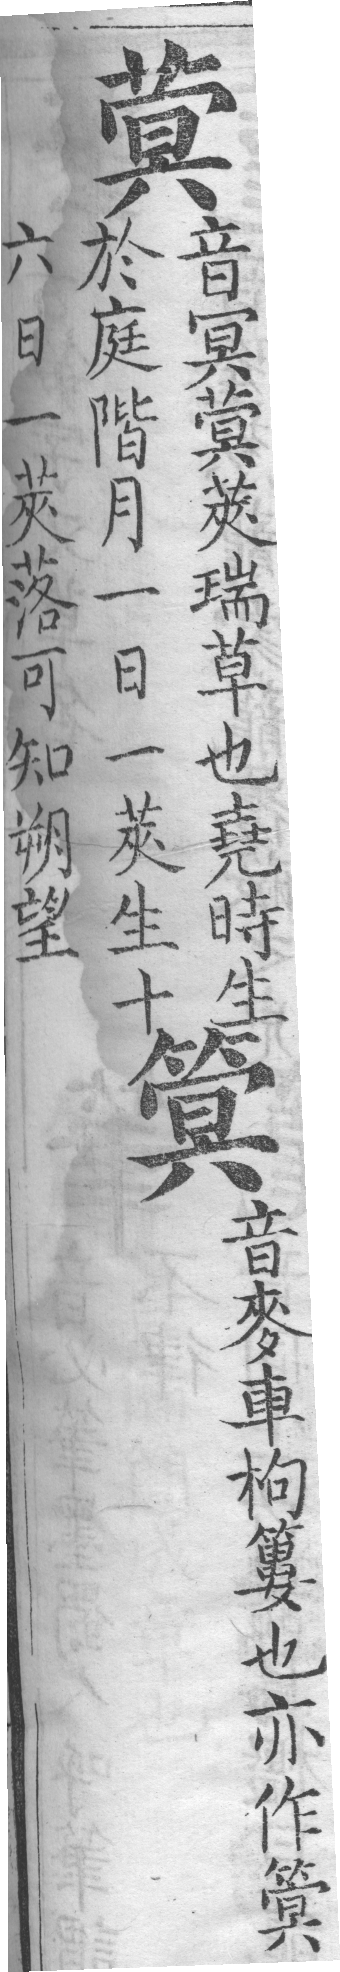 蓂
音冥蓂莢瑞草也堯時生
於庭階月一日一莢生十
六日一莢落可知朔望
篢
音麥車枸簍也亦作篢